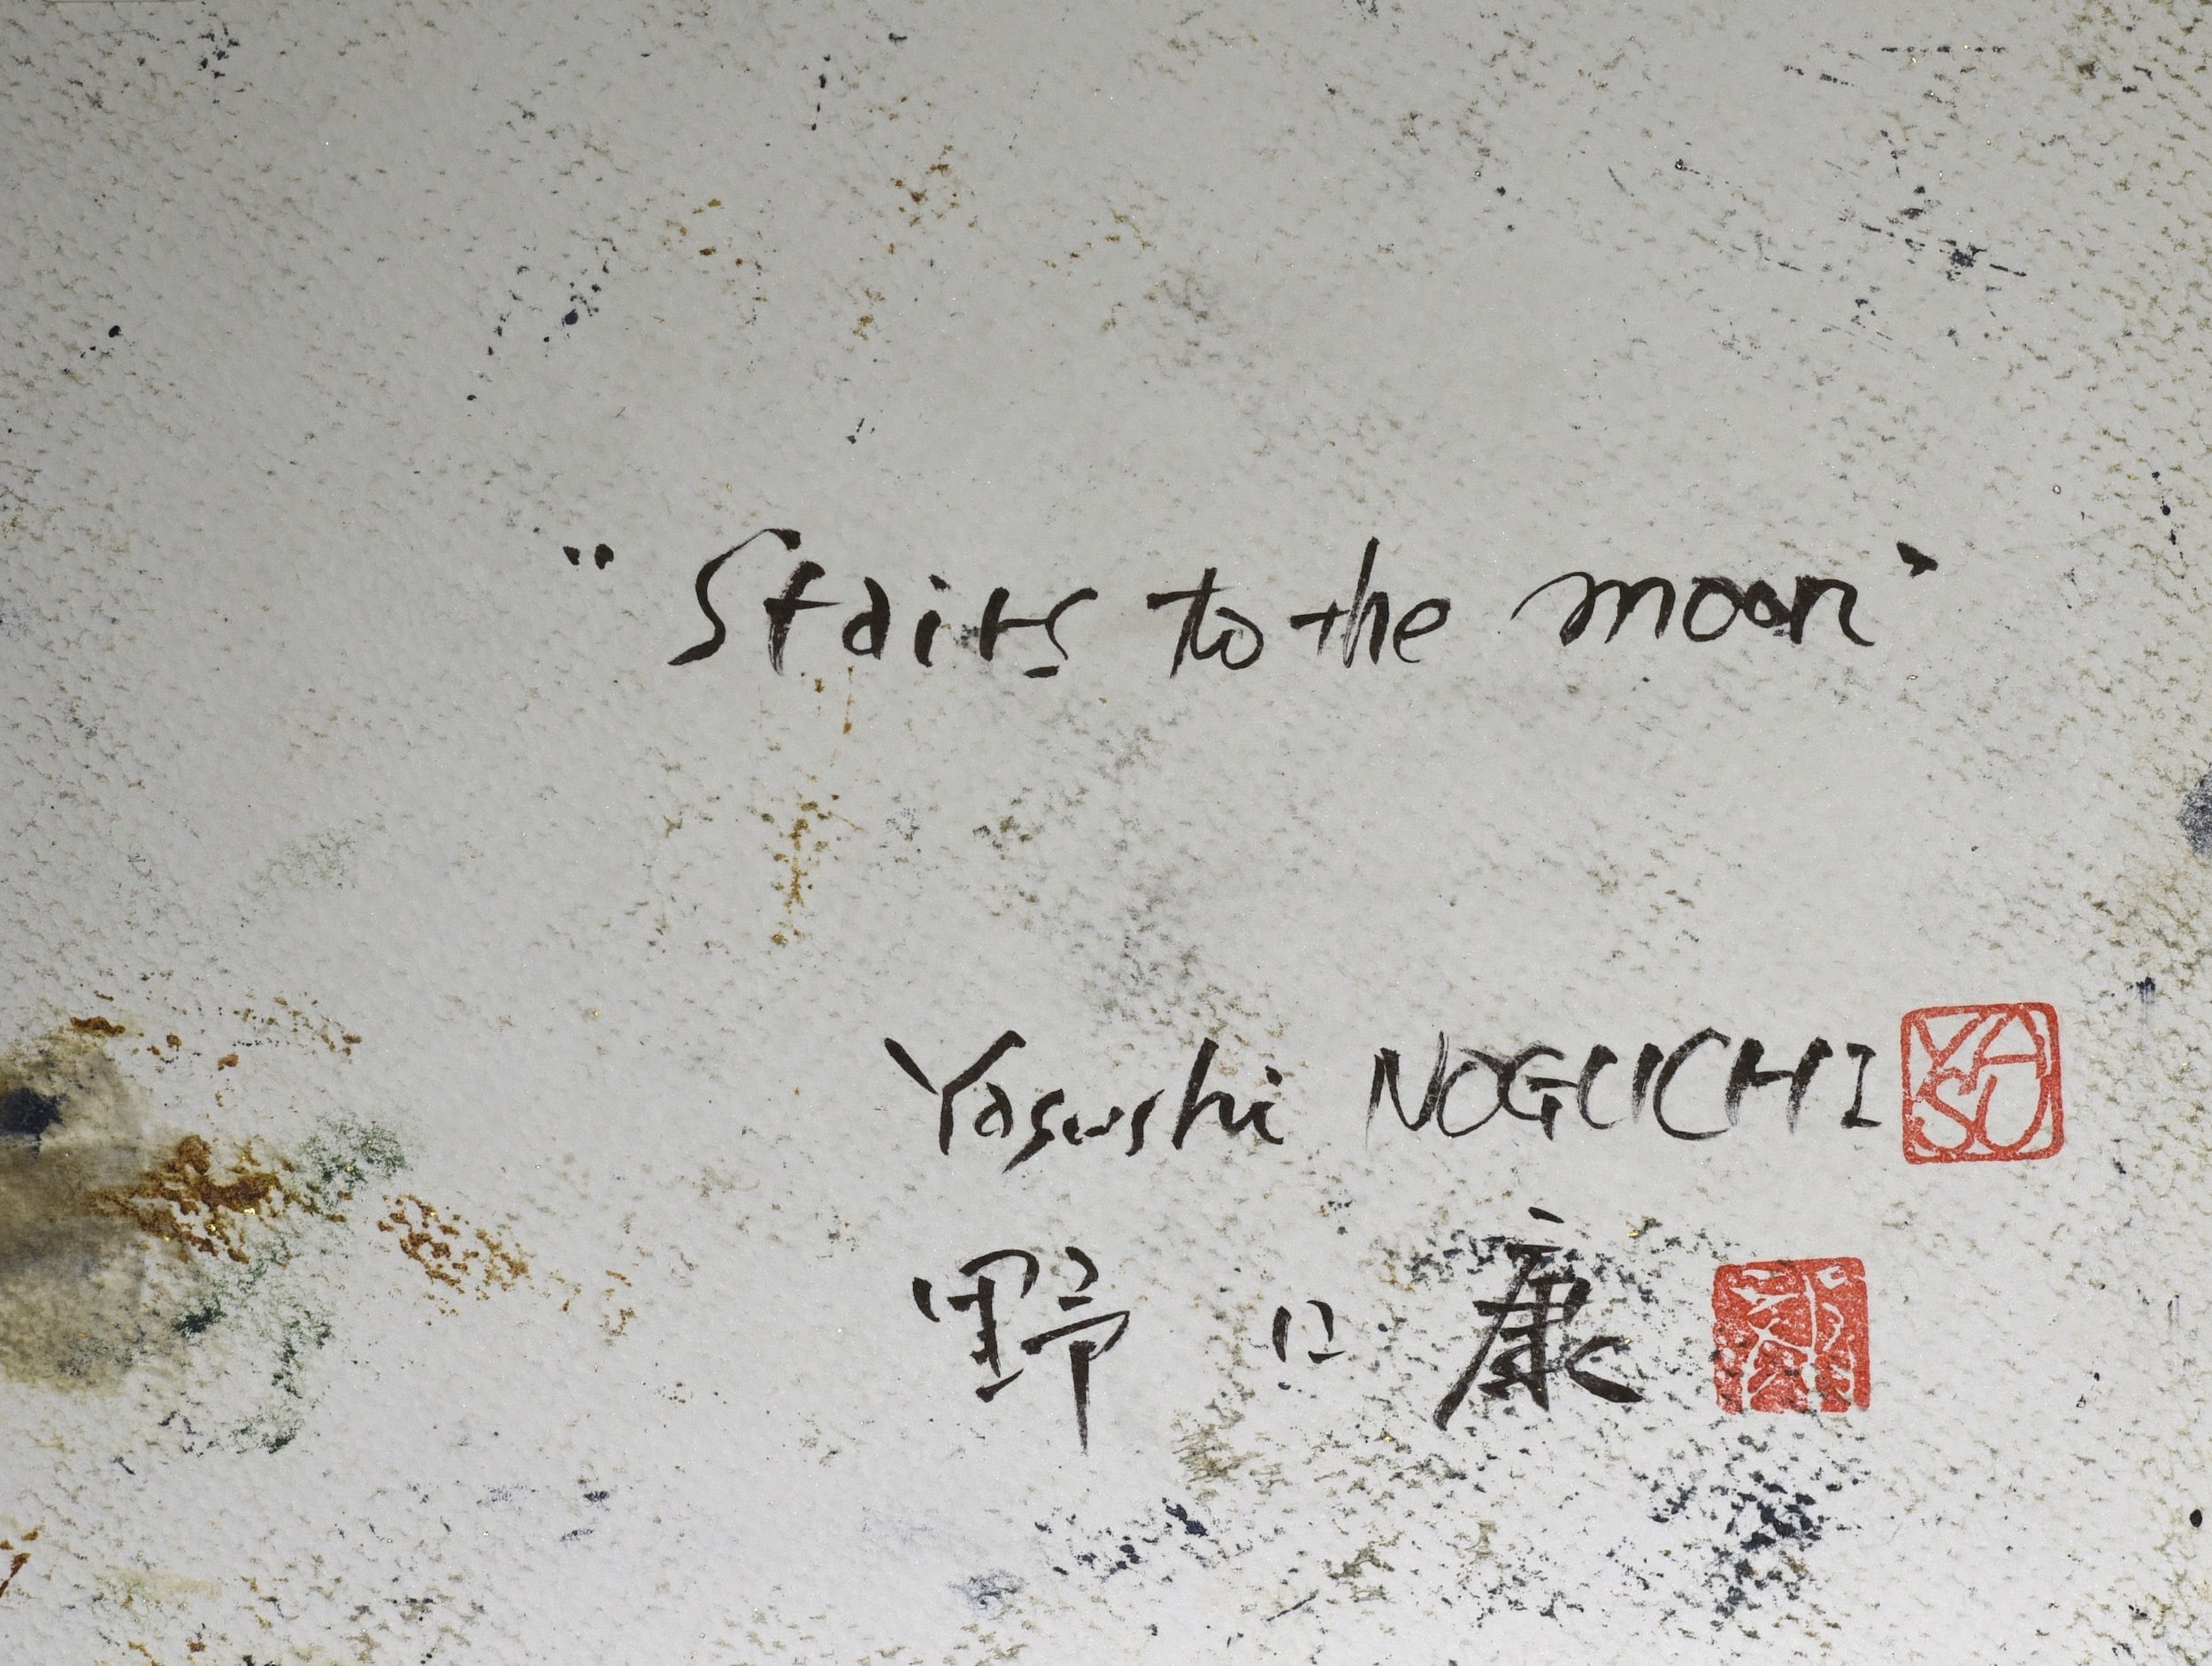 "Stairs to the moon"
Yasushi NOGUCHI YASU
野口康